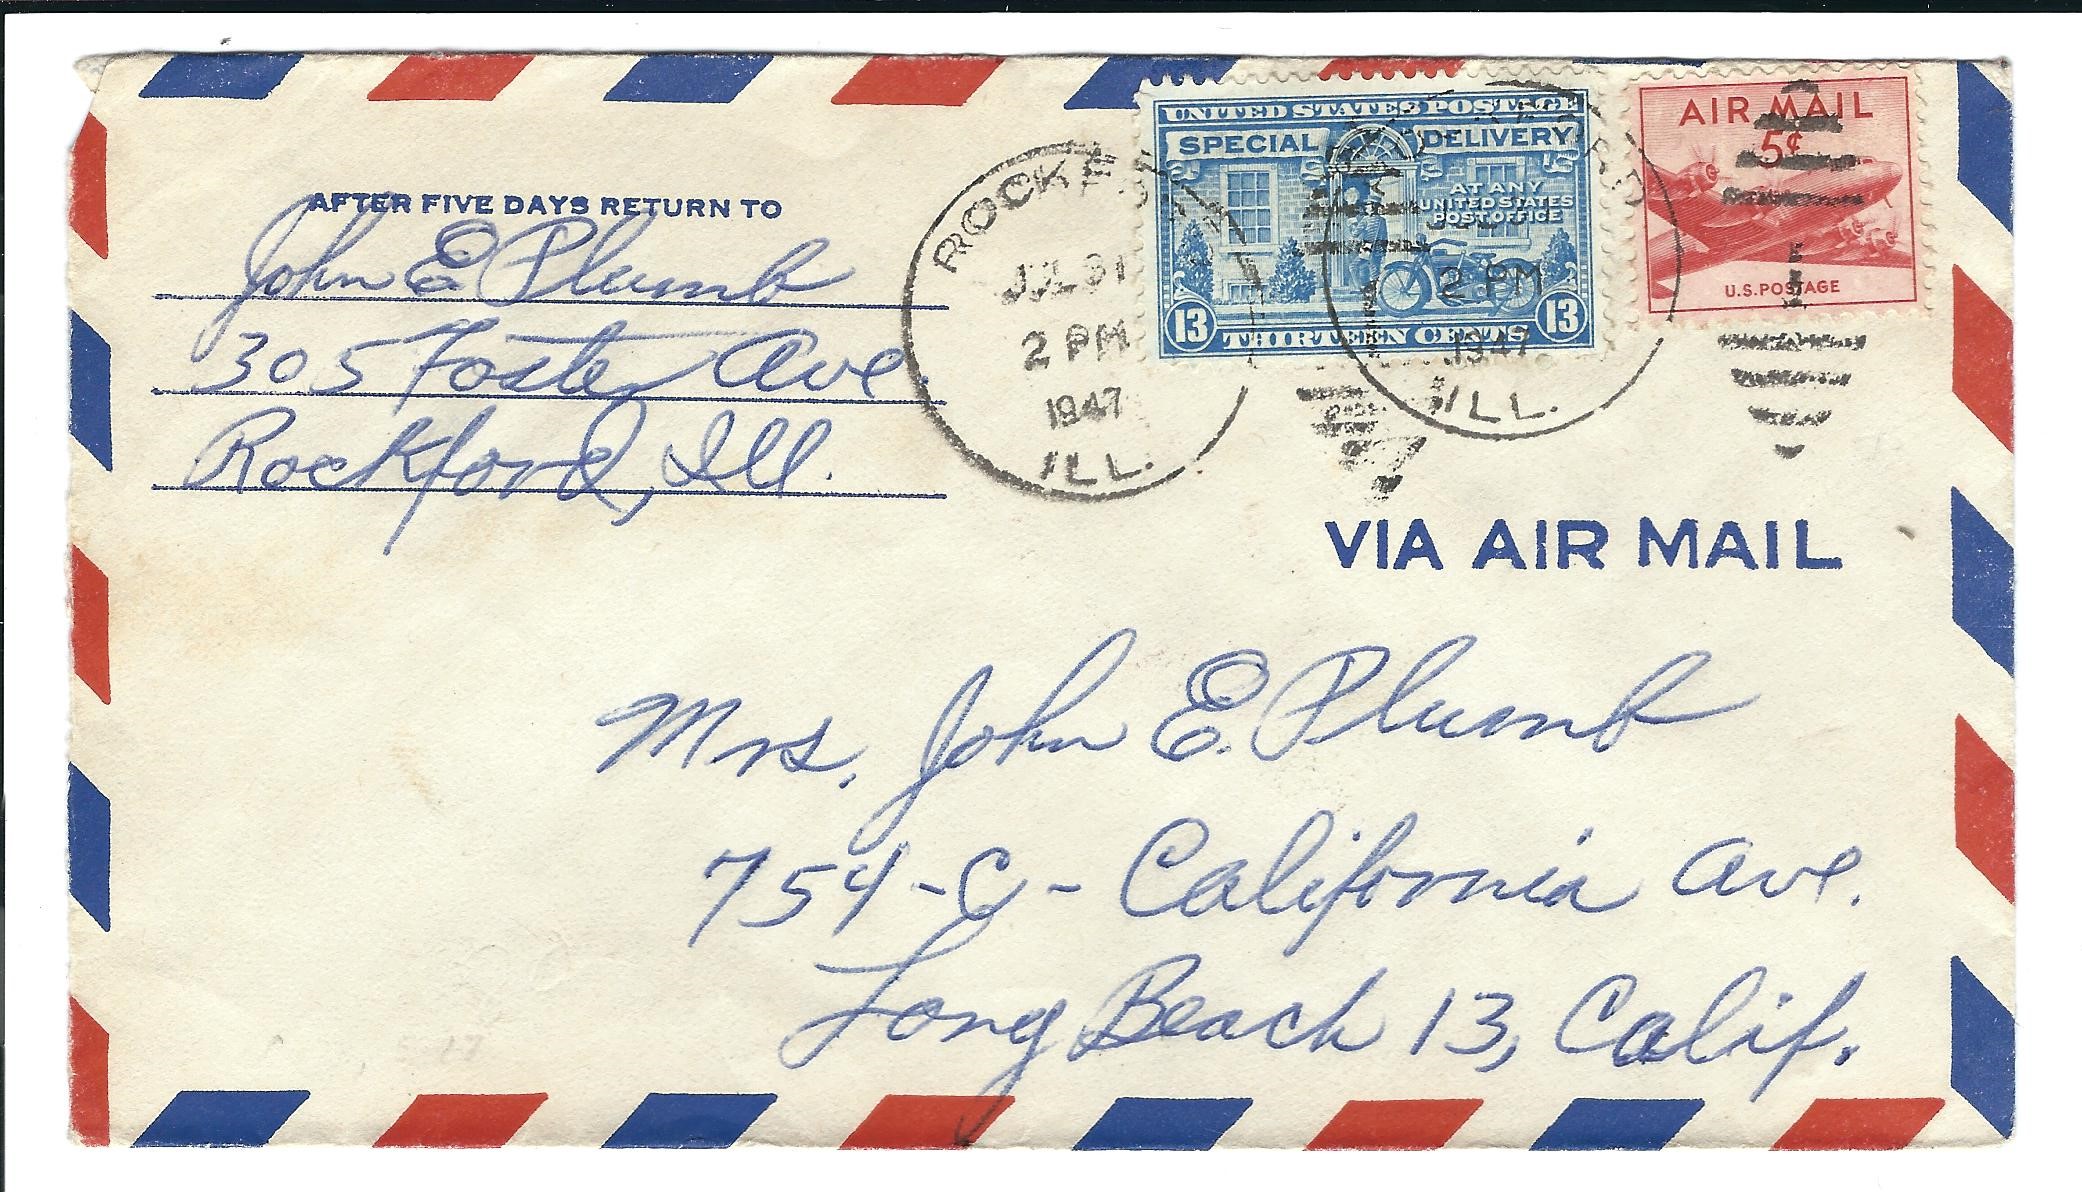 AFTER FIVE DAYS RETURN TO
John E Plumb
305 Foster Ave.
Rockford, Ill.
ROCKFORD
JUL 31
2 PM
1947
ILL.
UNITED STATES POSTAGE
SPECIAL DELIVERY
AT ANY
UNITED STATES
POST OFFICE
13 THIRTEEN CENTS 13
2 PM
1947
ILL.
AIR MAIL
5¢
U.S. POSTAGE
VIA AIR MAIL
Mrs. John E. Plumb
754-C- California Ave.
Long Beach 13, Calif.